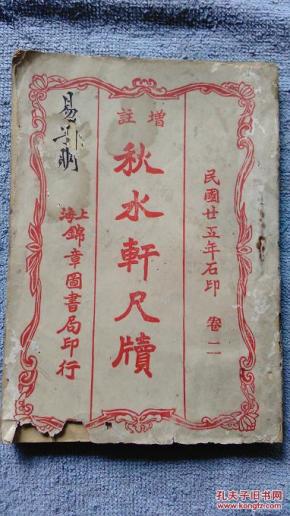 民國廿五年石印 卷二
增註
秋水軒尺牘
上海
錦章圖書局印行
孔夫子旧书网